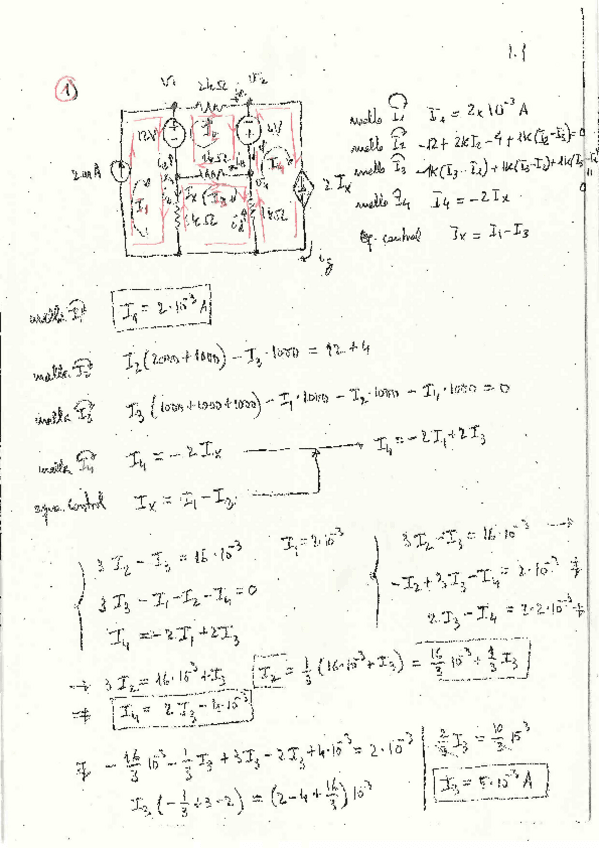 1.1
1)
V1 2kΩ V2
12V I2 4V
1kΩ
2mA I1 Ix I3 I4 2Ix
1kΩ 1kΩ
ig
malla I1 I1 = 2×10⁻³ A
malla I2 -12 + 2kI2 - 4 + 1k(I2-I3) = 0
malla I3 1k(I3-I2) + 1k(I3-I1) + 1k(I3-I4) = 0
malla I4 I4 = -2Ix
Eq. control Ix = I1 - I3
malla I1 I1 = 2·10⁻³ A
malla I2 I2(2000+1000) - I3·1000 = 12+4
malla I3 I3(1000+1000+1000) - I1·1000 - I2·1000 - I4·1000 = 0
malla I4 I4 = -2Ix → I4 = -2I1+2I3
equa. control Ix = I1 - I3
3I2 - I3 = 16·10⁻³ I1 = 2·10⁻³ 3I2 - I3 = 16·10⁻³ →
3I3 - I1 - I2 - I4 = 0 -I2 + 3I3 - I4 = 2·10⁻³
I4 = -2I1+2I3 2I3 - I4 = 2·2·10⁻³
→ 3I2 = 16·10⁻³ + I3 I2 = 1/3 (16·10⁻³ + I3) = 16/3 10⁻³ + 1/3 I3
I4 = 2I3 - 4·10⁻³
- 16/3 10⁻³ - 1/3 I3 + 3I3 - 2I3 + 4·10⁻³ = 2·10⁻³ 2/3 I3 = 10/3 10⁻³
I3 (-1/3 + 3 - 2) = (2 - 4 + 16/3) 10⁻³ I3 = 5·10⁻³ A